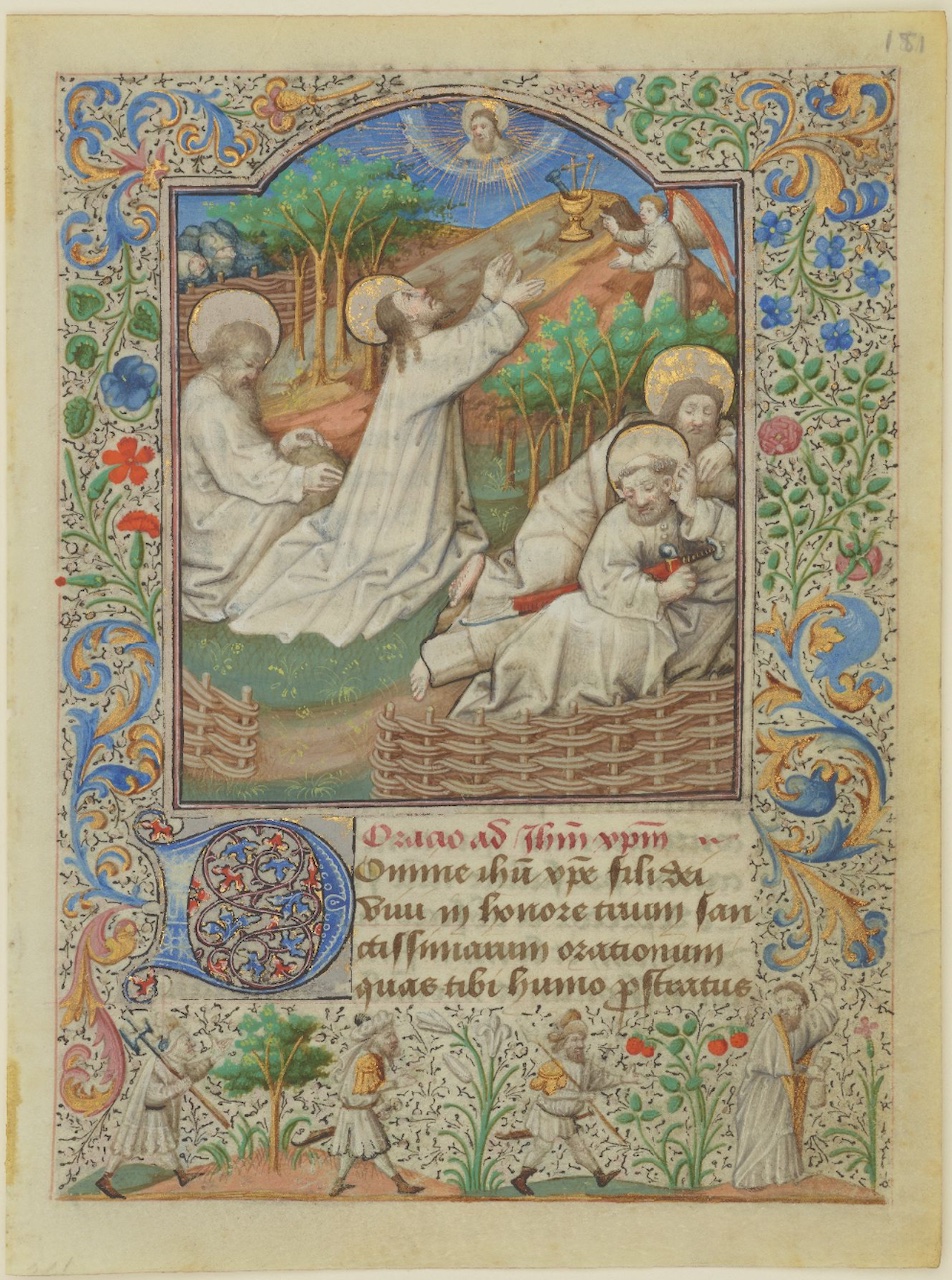 181
Oracio ad Jhm xpm
Domine ihu xpe fili dei
viui in honore trium san
ctissimarum orationum
quas tibi humo pstratus